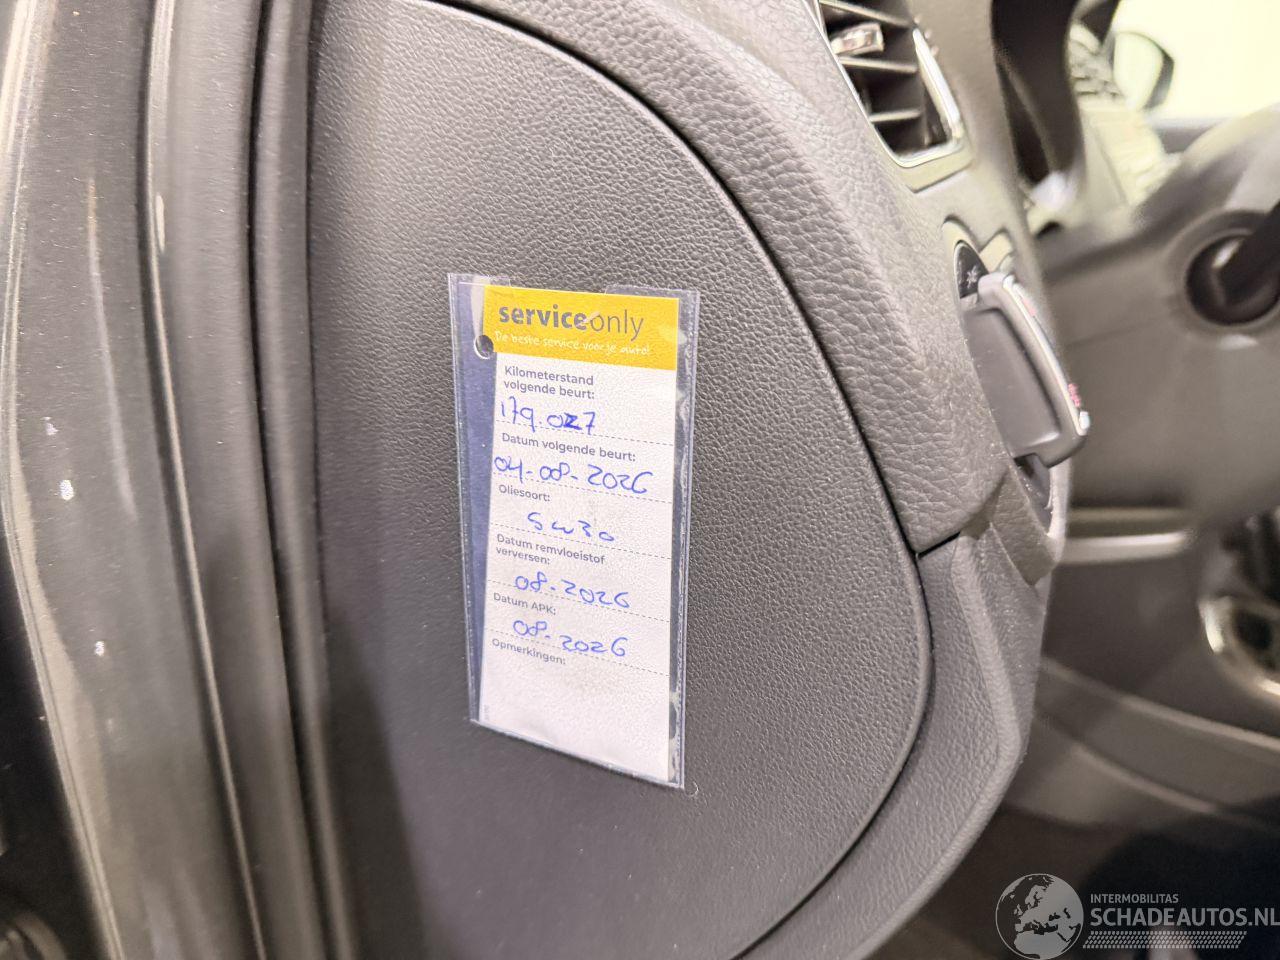 serviceonly
De beste service voor je auto!
Kilometerstand
volgende beurt:
179.027
Datum volgende beurt:
04-08-2026
Oliesoort:
5w30
Datum remvloeistof
verversen:
08-2026
Datum APK:
08-2026
Opmerkingen:
INTERMOBILITAS
SCHADEAUTOS.NL